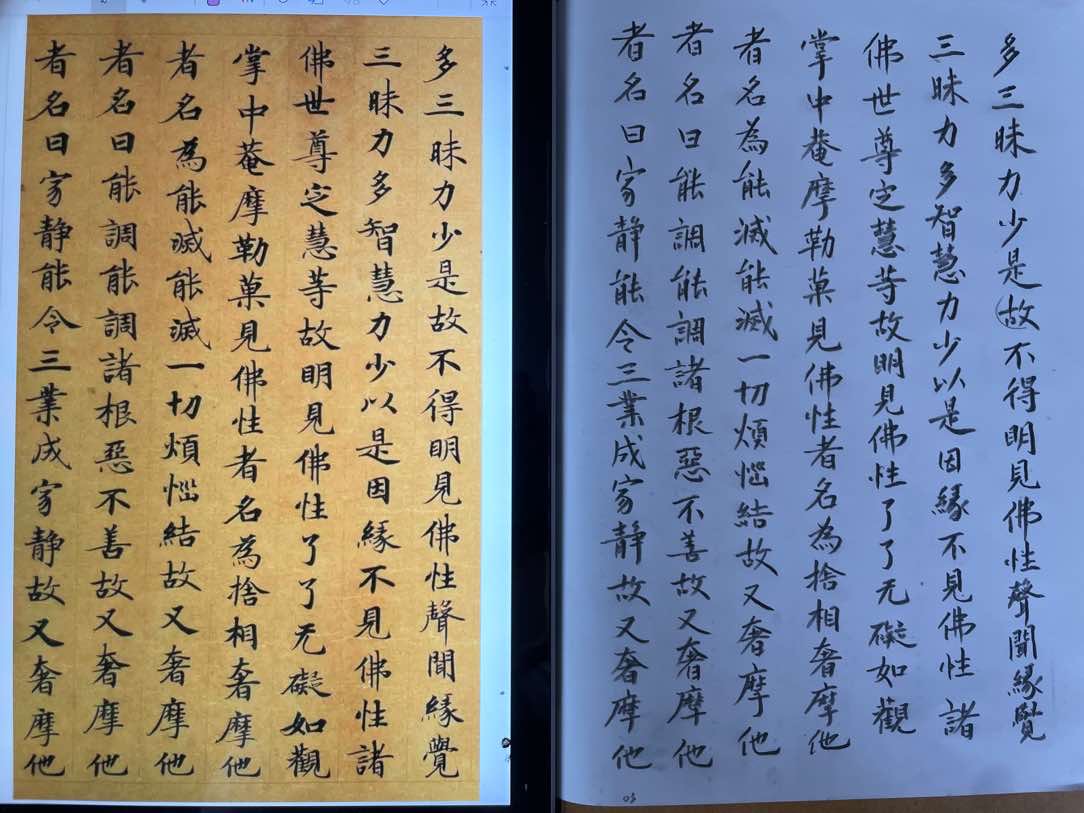 多三昧力少是故不得明見佛性聲聞緣覺
三昧力多智慧力少以是因緣不見佛性諸
佛世尊定慧等故明見佛性了了无礙如觀
掌中菴摩勒菓見佛性者名為捨相奢摩他
者名為能滅能滅一切煩惱結故又奢摩他
者名曰能調能調諸根惡不善故又奢摩他
者名曰寂静能令三業成寂静故又奢摩他
多三昧力少是故不得明見佛性聲聞緣覽
三昧力多智慧力少以是因緣不見佛性諸
佛世尊定慧等故明見佛性了了无礙如觀
掌中菴摩勒菓見佛性者名為捨相奢摩他
者名為能滅能滅一切煩惱結故又奢摩他
者名曰能調能調諸根惡不善故又奢摩他
者名曰寂静能令三業成寂静故又奢摩他